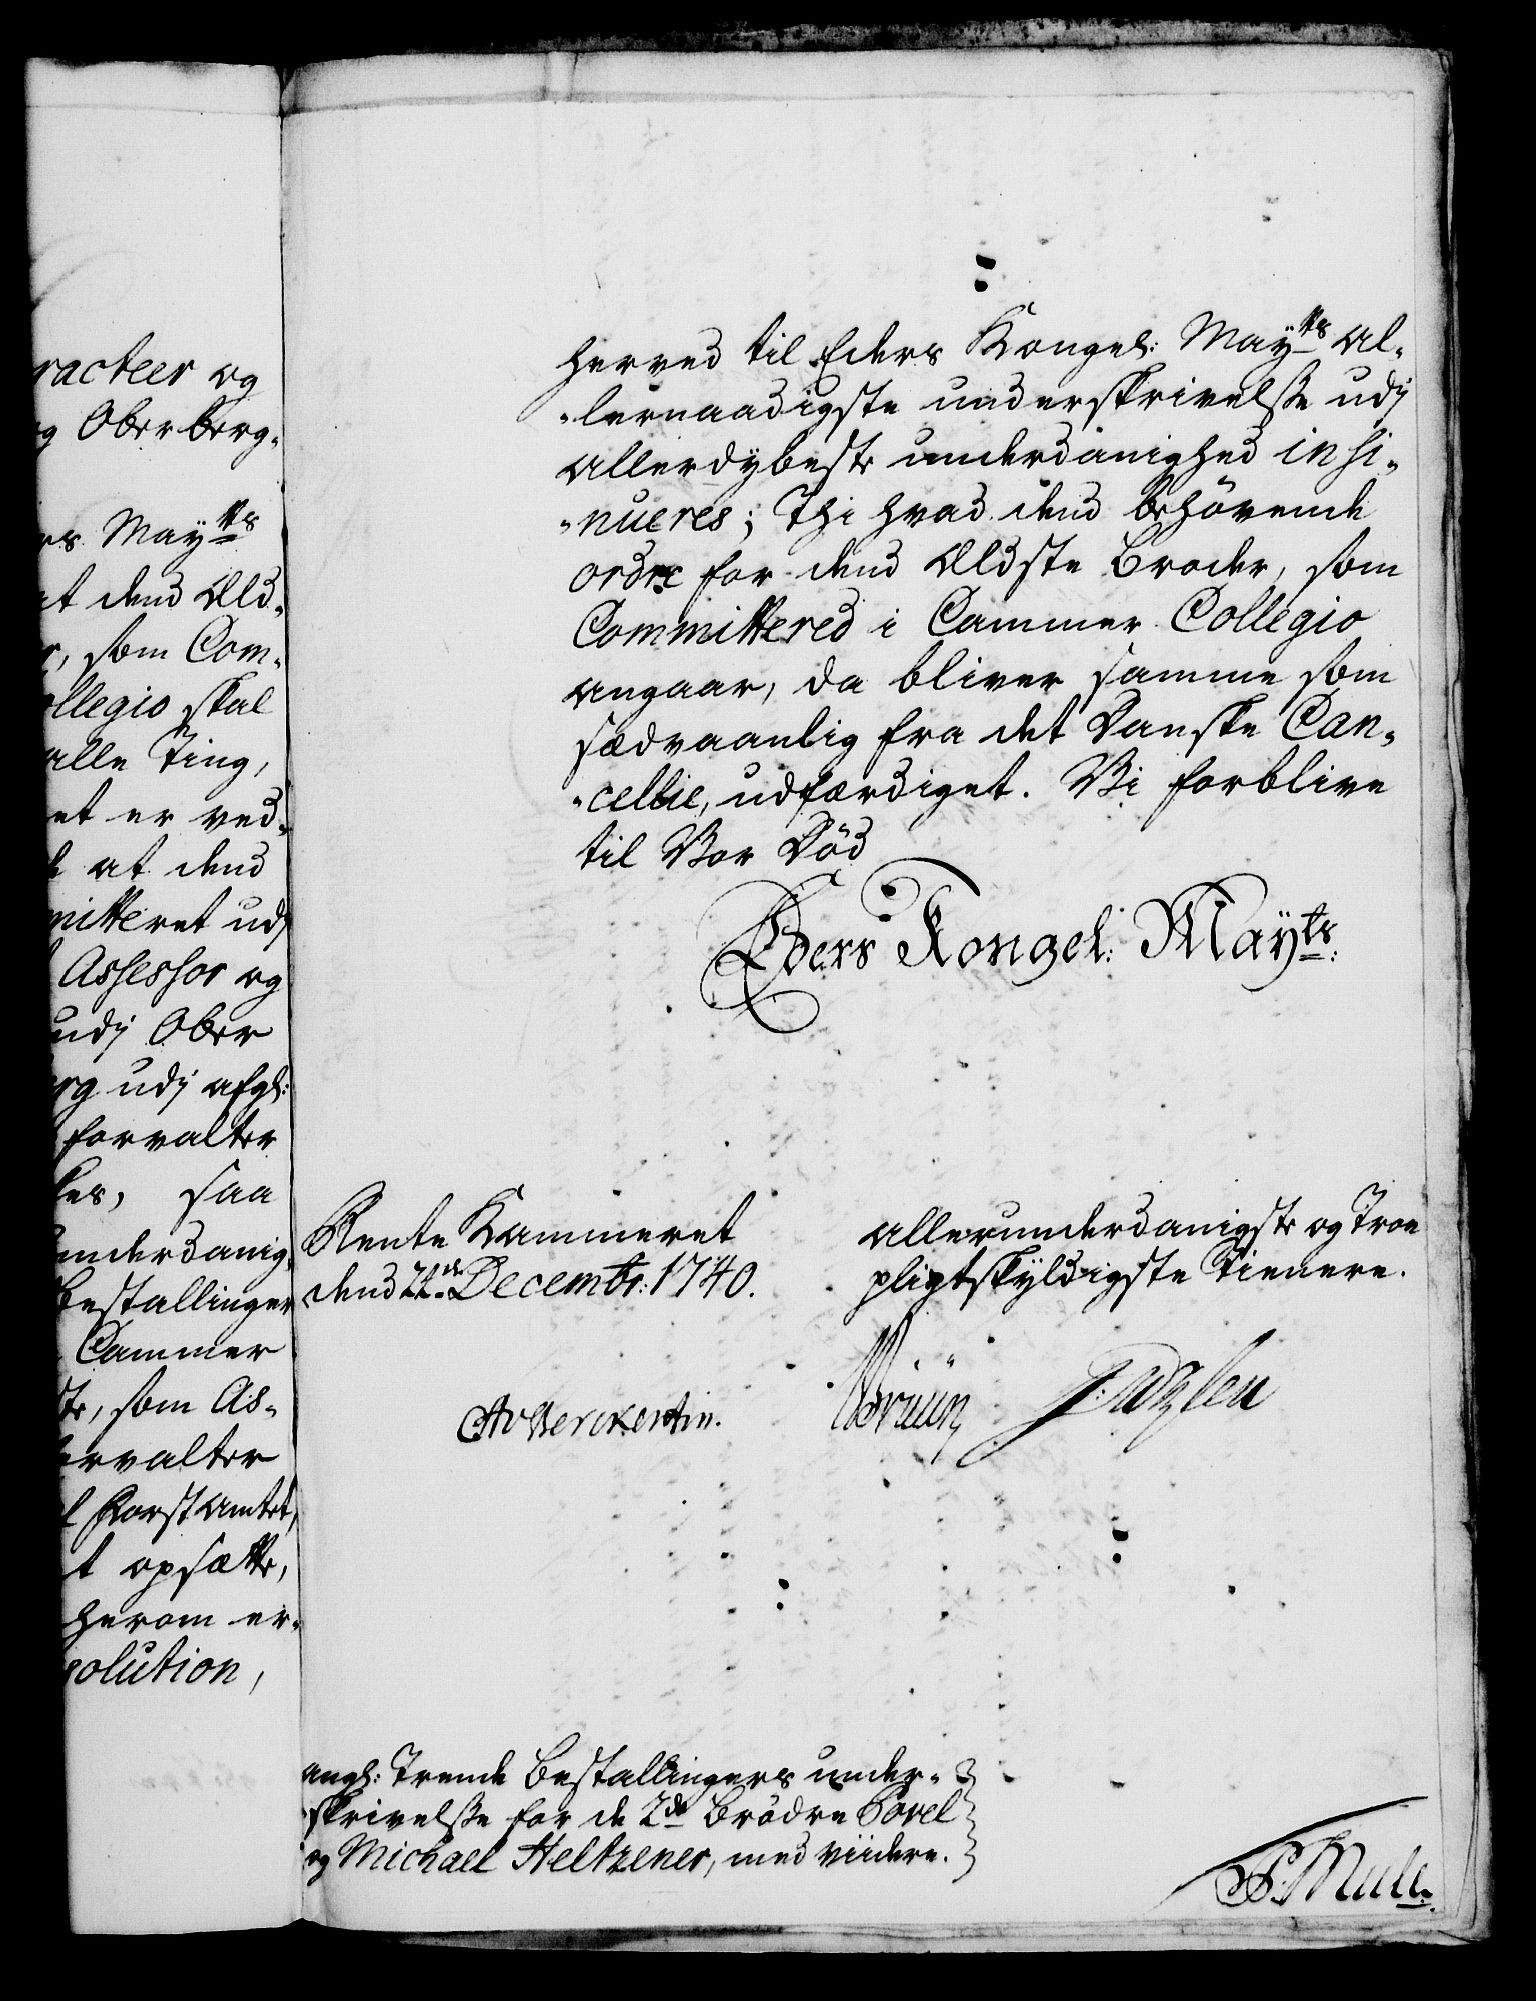 racteer og
g Oberberg-
rs Mayts
at dend Æld-
r, som Com-
ollegio skal
alle Ting,
et er ved-
at dend
mitteret udj
Assessor og
udj Ober
rg udj afgl:
forvalter
kes, saa
underdanig-
Bestallinger
Cammer
te, som As-
ervalter
l Forst Amtet,
t opsætte,
herom er-
solution,
herved til Eders Kongel: Mayts al-
-lernaadigste underskrivelsse udj
allerdybeste underdanighed insi-
-nueres; Thi hvad dend behövende
ordre for dend Ældste Broder, som
Committered i Cammer Collegio
angaar, da bliver samme som
sædvaanlig fra det Danske Can-
-cellie, udfærdiget. Vi forblive
til Vor Död
Eders Kongel: Mayts:
Rente Kammeret
dend 22de Decembr: 1740.
allerunderdanigste og Troe
pligtskyldigste Tienere.
CAvBerckentin.
Bruun
angl: Trende Bestallingers under-
skrivelsse for de 2de Brödre Povel
og Michael Heltzener, med viidere.
P. Mule.